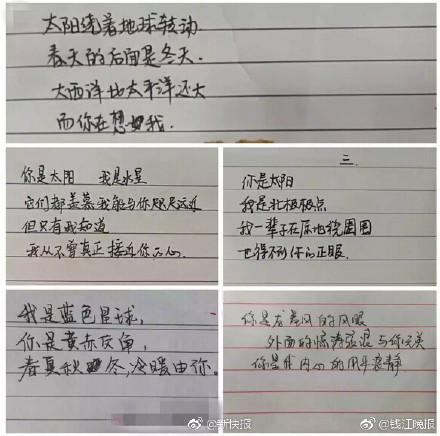 太阳绕着地球转动
春天的后面是冬天.
大西洋比太平洋还大
而你在想我.
你是太阳 我是水星
它们都羡慕我能与你咫尺远近
但只有我知道
我从不曾真正接近你的心.
三.
你是太阳
我是北极极点
我一辈子在原地绕圈圈
也得不到你的正眼.
我是蓝色星球,
你是黄赤交角,
春夏秋冬,冷暖由你。
你是龙卷风的风眼
外面的惊涛骇浪与你无关
你是我内心的用平寂静
@新快报
@钱江晚报